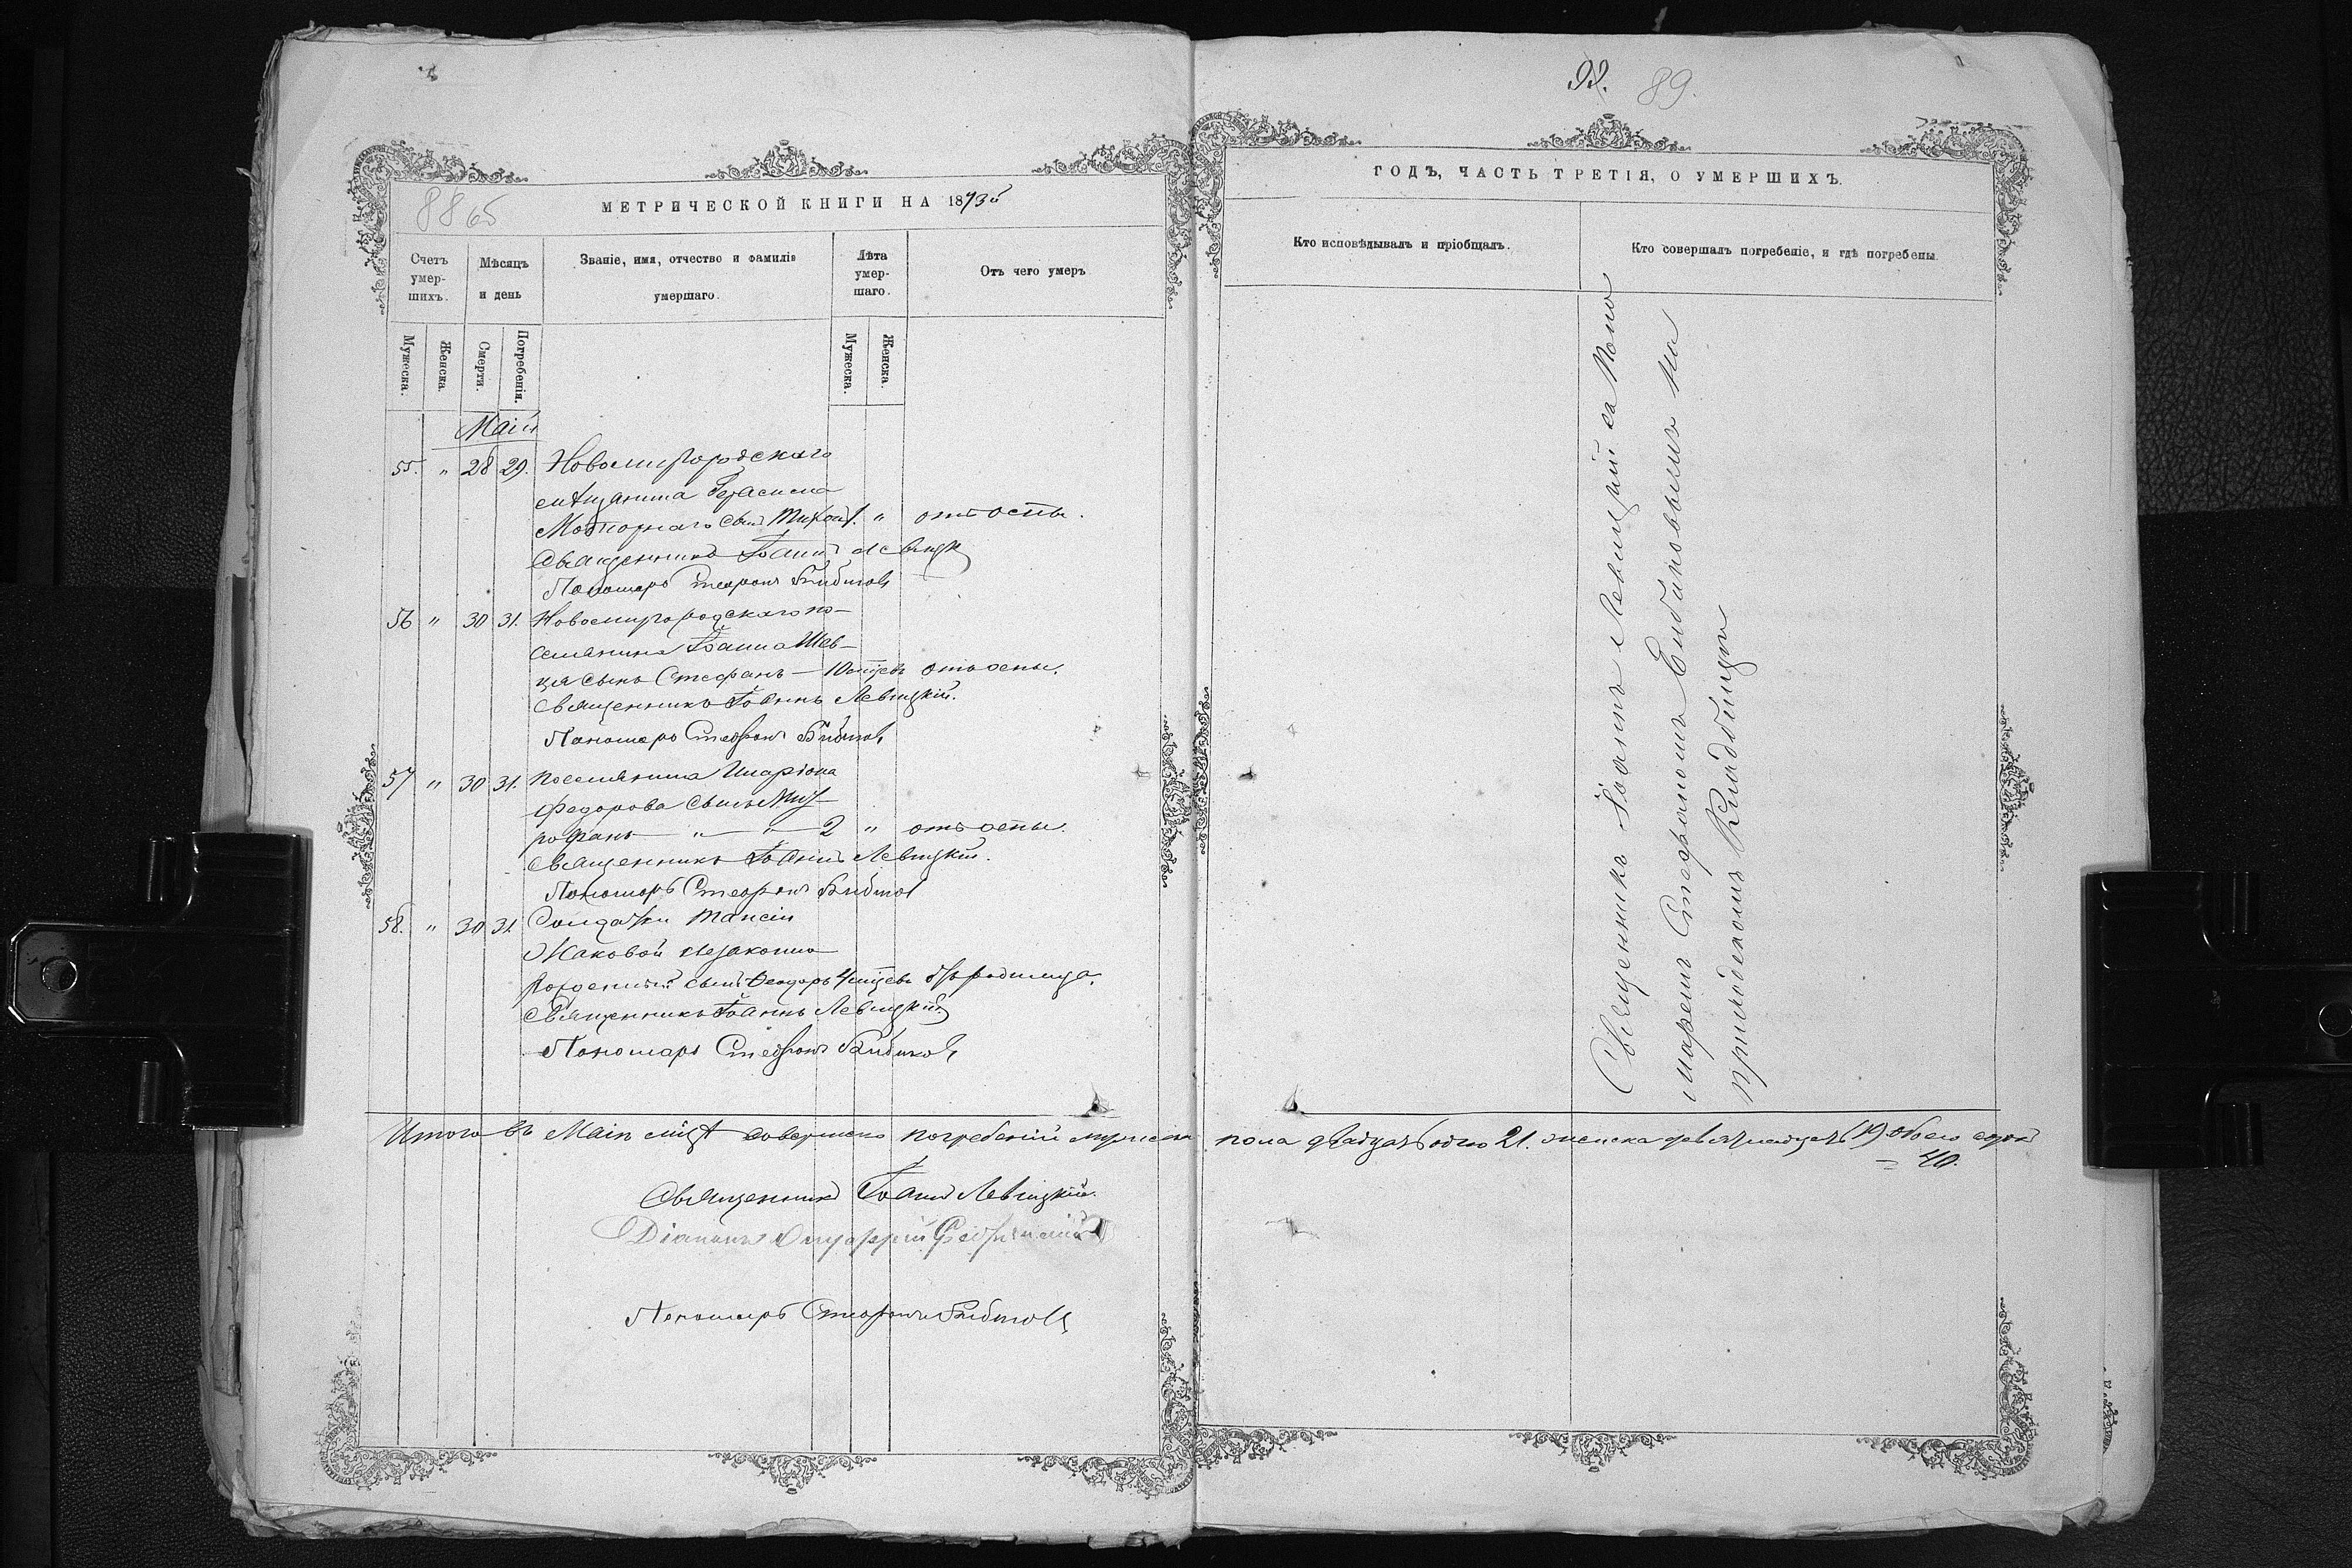 88об
МЕТРИЧЕСКОЙ КНИГИ НА 1873й
Счетъ умер-шихъ.
Мѣсяцъ и день
Званіе, имя, отчество и фамилія умершаго.
Лѣта умер-шаго.
Отъ чего умеръ
Мужеска.
Женска.
Смерти.
Погребенія.
Мужеска.
Женска.
Маій
55. " 28 29. Новомиргородскаго
мѣщанина Герасима
сынъ 1. " отъ оспы.
Священникъ Іоаннъ Левицкій
Пономарь Стефанъ Бибиковъ
56 " 30 31. Новомиргородскаго по-
селянина Іоанна Шев-
ця сынъ Стефанъ — 10 мцевъ отъ оспы.
Священникъ Іоаннъ Левицкій.
Пономарь Стефанъ Бибиковъ
57 " 30 31. Поселянина Иларіона
Федорова сынъ Мит-
рофанъ — " — " — 2 " отъ оспы.
Священникъ Іоаннъ Левицкій.
Пономарь Стефанъ Бибиковъ
58. " 30 31. Солдатки Таисіи
незаконно
рожденный сынъ Феодоръ 4 мцевъ отъ родимца.
Священникъ Іоаннъ Левицкій
Пономарь Стефанъ Бибиковъ
Итого въ Маіи мцѣ совершено погребеній мужеска
Священникъ Іоаннъ Левицкій.
Діаконъ
Пономарь Стефанъ Бибиковъ
99. 89.
ГОДЪ, ЧАСТЬ ТРЕТІЯ, О УМЕРШИХЪ.
Кто исповѣдывалъ и пріобщалъ.
Кто совершалъ погребеніе, и гдѣ погребены.
Священникъ Іоаннъ Левицкій съ Поно
маремъ Стефаномъ Бибиковымъ на
приходскомъ Кладбищѣ
пола двадцать одно 21. женска девятнадцать 19. обоего сорокъ
= 40.